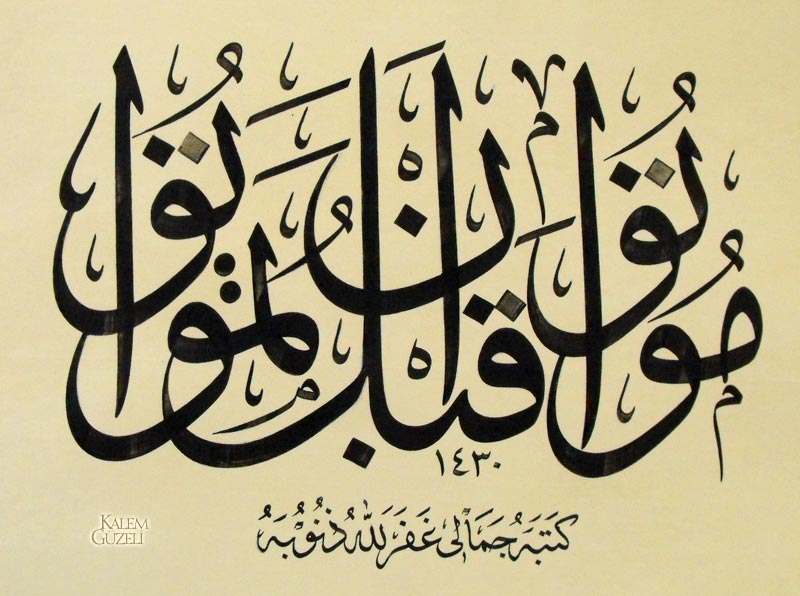 مُوتُوا قبل ان تموتوا
١٤٣٠
كَتَبَهُ جَمَالِى غَفَرَ اللهُ ذُنُوبَهُ
KALEM
GÜZELİ